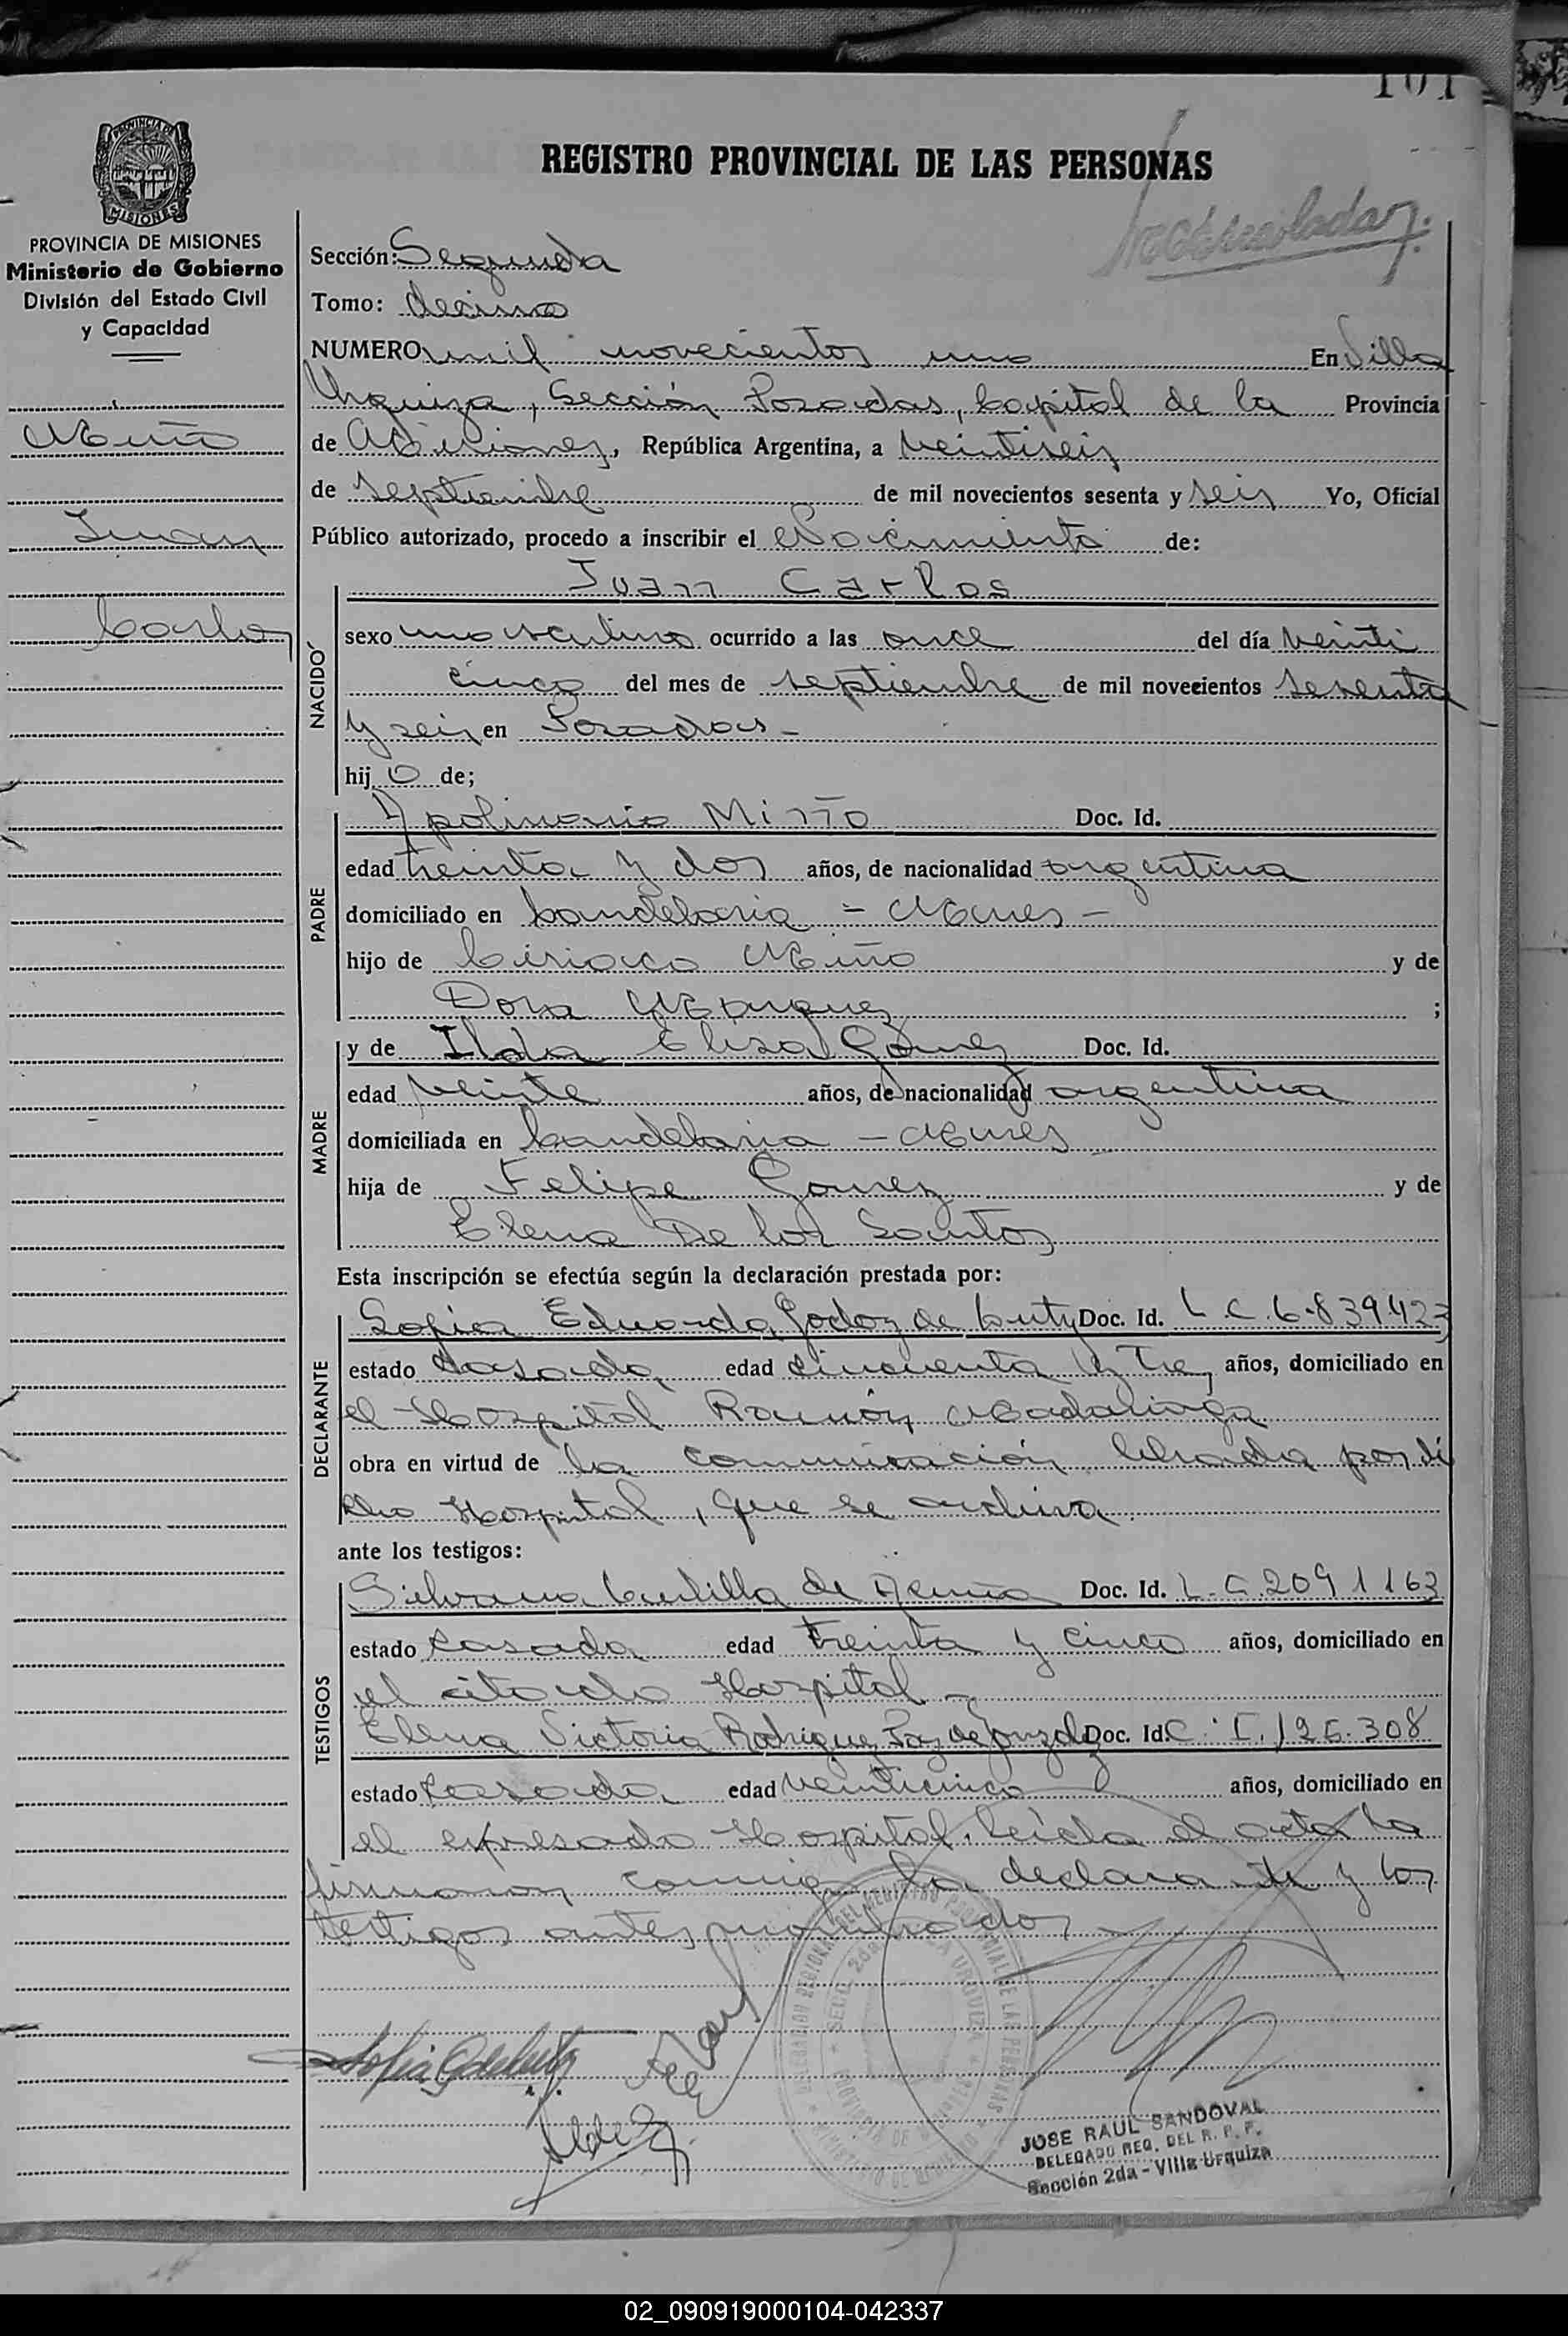 101
REGISTRO PROVINCIAL DE LAS PERSONAS
PROVINCIA DE MISIONES
MISIONES
PROVINCIA DE MISIONES
Ministerio de Gobierno
División del Estado Civil
y Capacidad
Miño
Juan
Carlos
Sección: Segunda
Tomo: decimo
NUMERO mil novecientos uno En Villa
Urquiza, Sección Posadas, Capital de la Provincia
de Misiones, República Argentina, a veintiseis
de septiembre de mil novecientos sesenta y seis Yo, Oficial
Público autorizado, procedo a inscribir el Nacimiento de:
NACIDO
Juan Carlos
sexo masculino ocurrido a las once del día veinti
cinco del mes de septiembre de mil novecientos sesenta
y seis en Posadas -
hij o de;
PADRE
Apolinario Miño Doc. Id.
edad treinta y dos años, de nacionalidad argentina
domiciliado en Candelaria - Mnes -
hijo de Ciriaco Miño y de
Dora Marquez ;
MADRE
y de Ilda Elisa Gómez Doc. Id.
edad veinte años, de nacionalidad argentina
domiciliada en Candelaria - Mnes
hija de Felipe Gomez y de
Elena De los Santos
Esta inscripción se efectúa según la declaración prestada por:
DECLARANTE
Sofia Eduarda Godoy de Doc. Id. L.C. 6.839.423
estado casada edad cincuenta y tres años, domiciliado en
el Hospital Ramón Madariaga
obra en virtud de la comunicación librada por di
cho Hospital, que se archiva
ante los testigos:
TESTIGOS
Silvana de Doc. Id. L.C. 2091163
estado casada edad treinta y cinco años, domiciliado en
el citado Hospital -
Elena Victoria Rodriguez Paz de Doc. Id. C.I. 126.308
estado casada edad veinticinco años, domiciliado en
el expresado Hospital. Leída el acta la
firmaron conmigo la declarante y los
testigos antes nombrados
JOSE RAUL SANDOVAL
DELEGADO REG. DEL R. P. P.
Sección 2da - Villa Urquiza
02_090919000104-042337